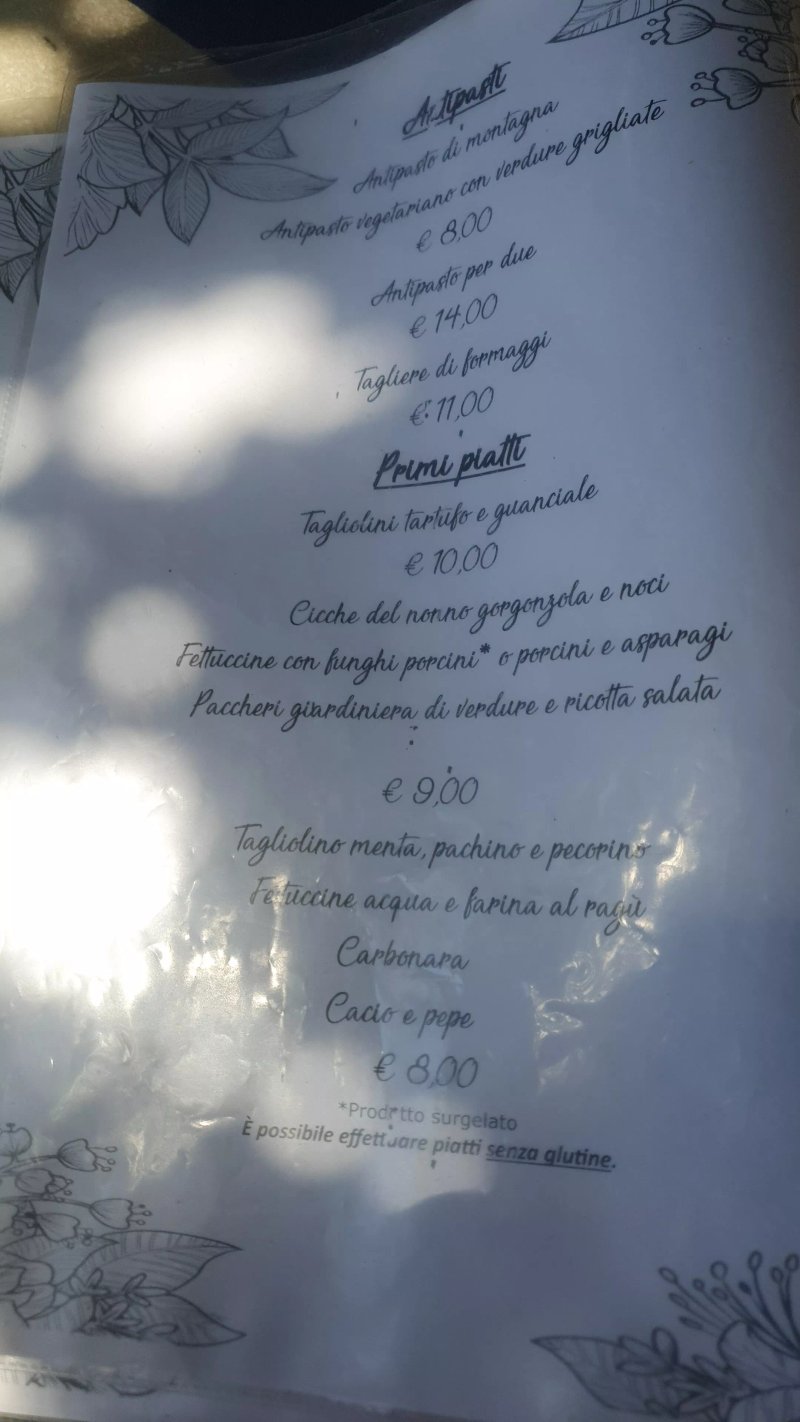 Antipasti
Antipasto di montagna
Antipasto vegetariano con verdure grigliate
€ 8,00
Antipasto per due
€ 14,00
Tagliere di formaggi
€ 11,00
Primi piatti
Tagliolini tartufo e guanciale
€ 10,00
Cicche del nonno gorgonzola e noci
Fettuccine con funghi porcini* o porcini e asparagi
Paccheri giardiniera di verdure e ricotta salata
€ 9,00
Tagliolino menta, pachino e pecorino
Fettuccine acqua e farina al ragù
Carbonara
Cacio e pepe
€ 8,00
*Prodotto surgelato
È possibile effettuare piatti senza glutine.